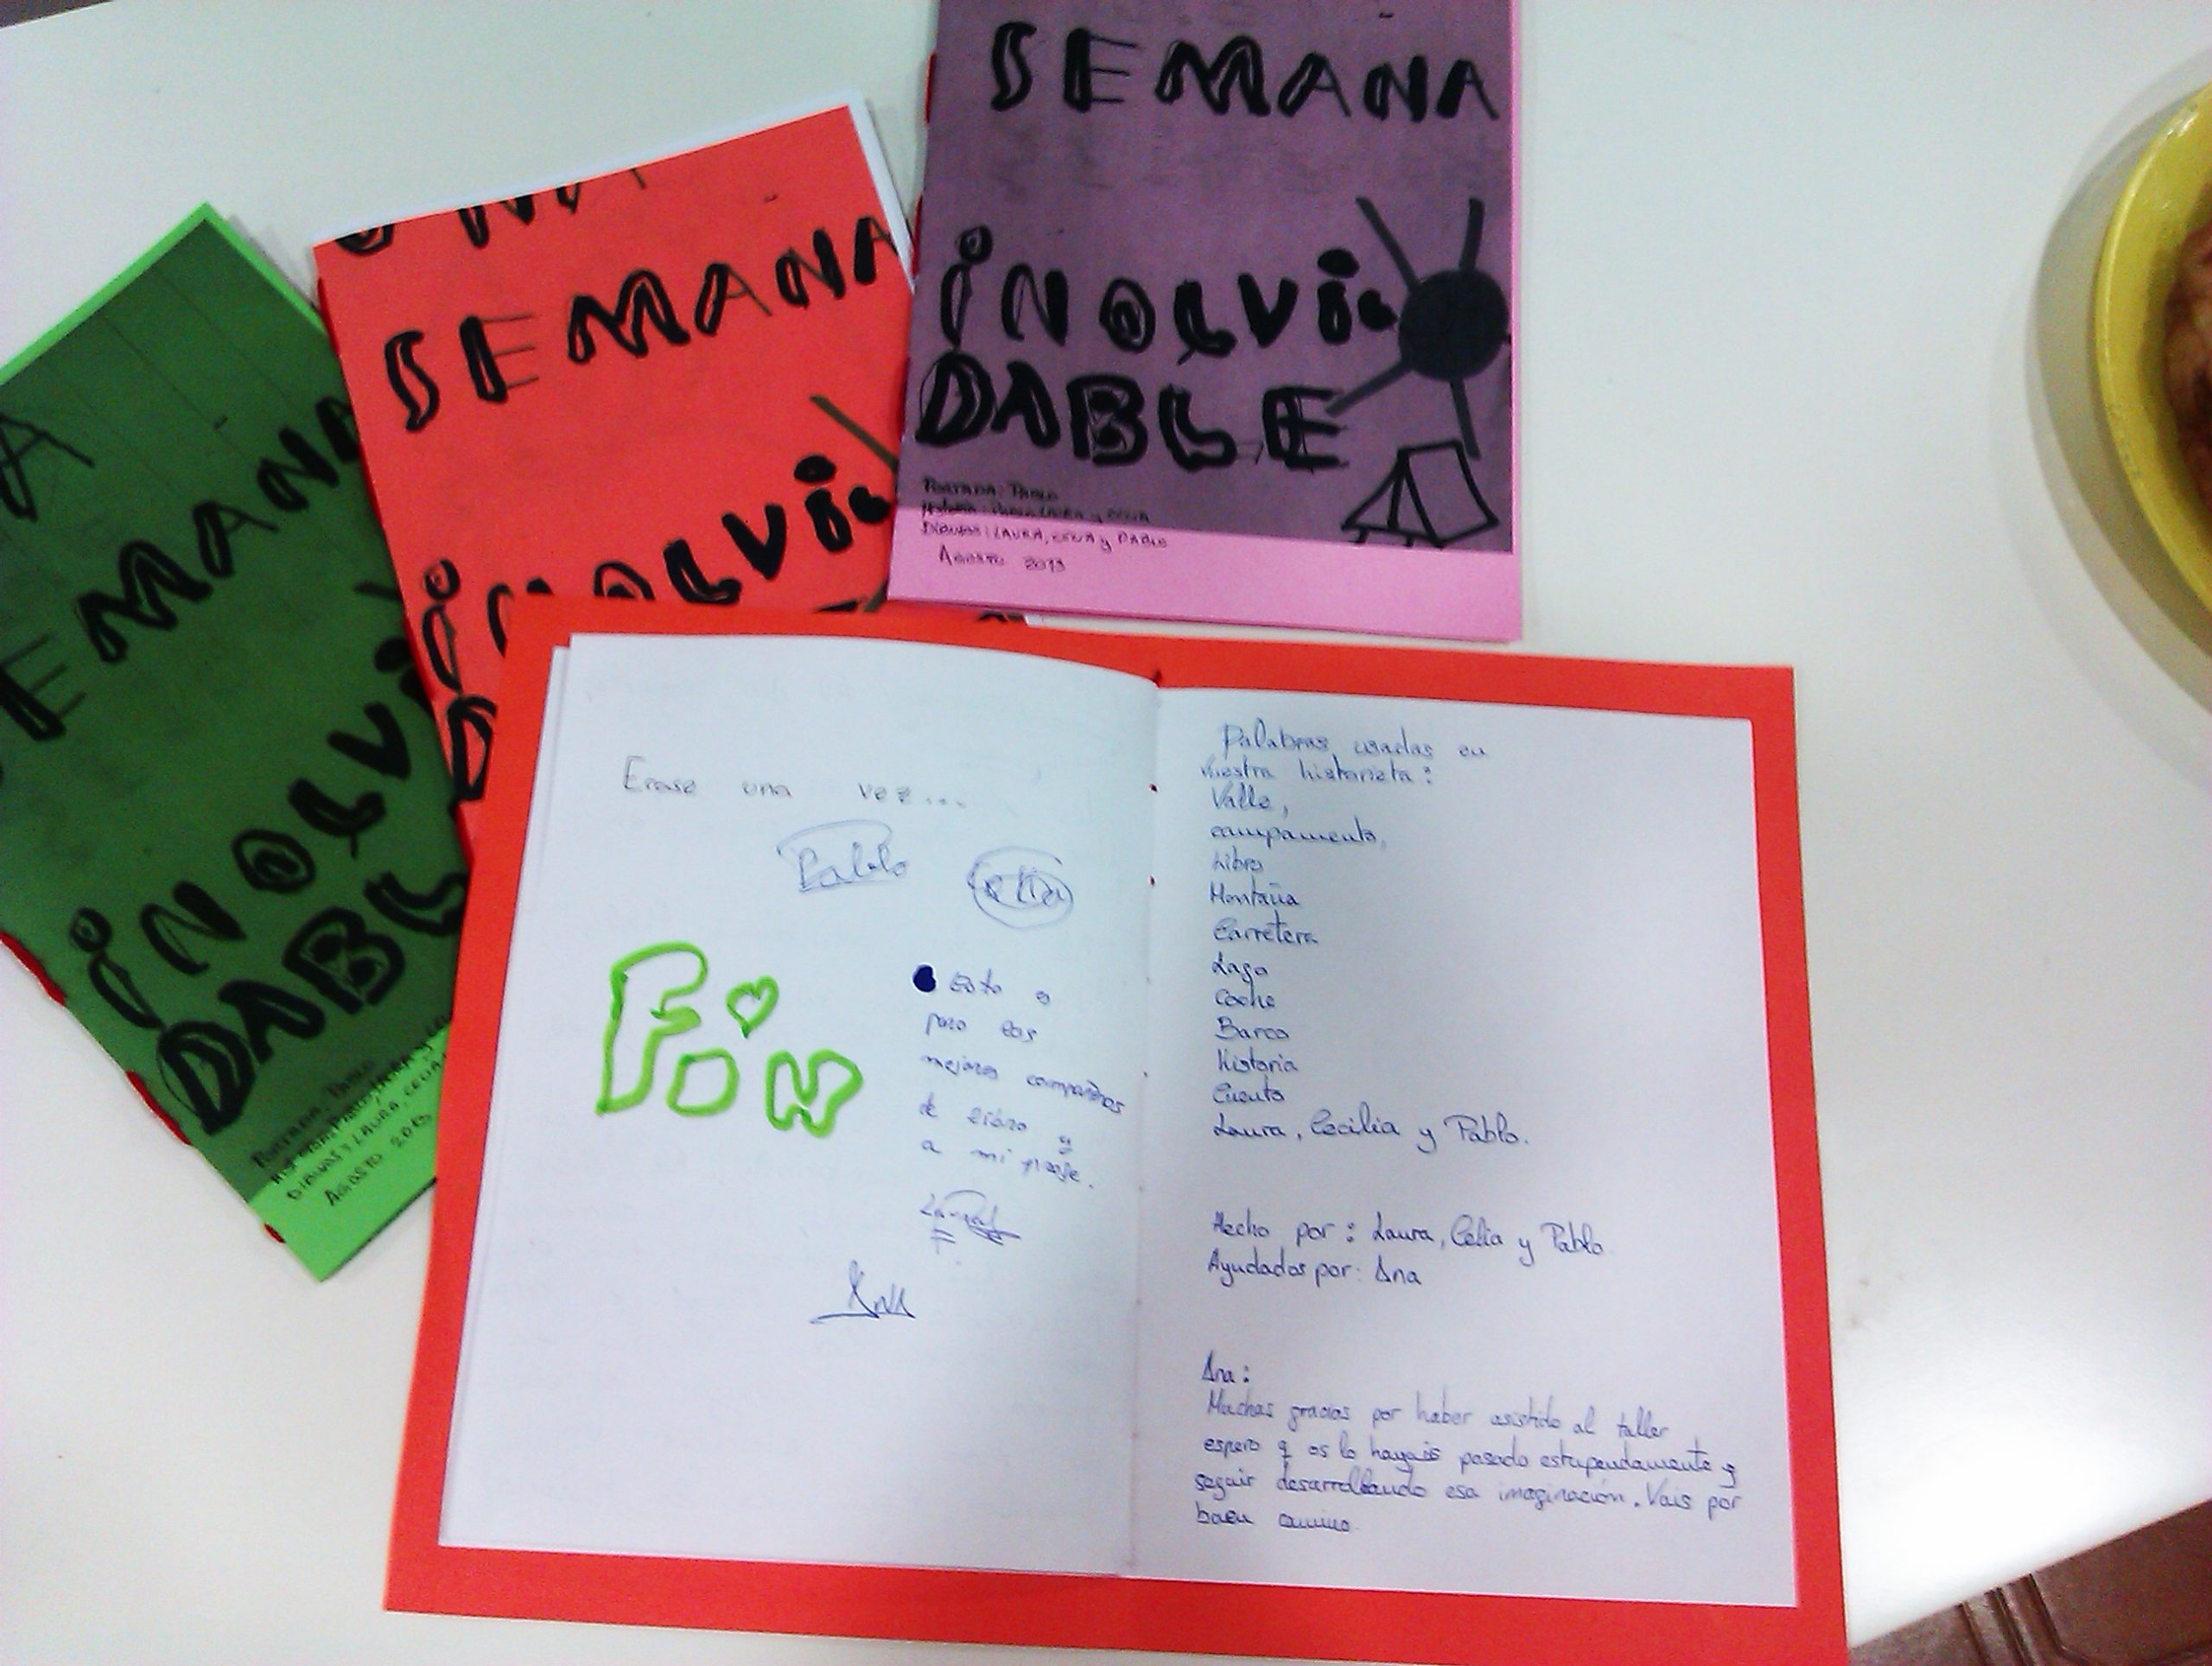 A
EMANA
iNOLVi
DABL
PORTADA: PABLO
HISTORIA: PABLO, LAURA y
DIBUJOS: LAURA, CELIA
AGOSTO 2013
UNA
SEMANA
iNOLVi
D
SEMANA
iNOLVi
DABLE
PORTADA: PABLO
HISTORIA: PABLO, LAURA y CELIA
DIBUJOS: LAURA, CELIA y PABLO
AGOSTO 2013
Erase una vez...
Pablo
Celia
FiN
Esto es
para los
mejores compañeros
de libro y
a mi profe.
Laura
Ana
Palabras usadas en
nuestra historieta:
Valle,
campamento,
Libro
Montaña
Carretera
Lago
Coche
Barco
Historia
Cuento
Laura, Cecilia y Pablo.
Hecho por: Laura, Celia y Pablo
Ayudados por: Ana
Ana:
Muchas gracias por haber asistido al taller
espero q os lo hayais pasado estupendamente y
seguir desarrollando esa imaginación. Vais por
buen camino.